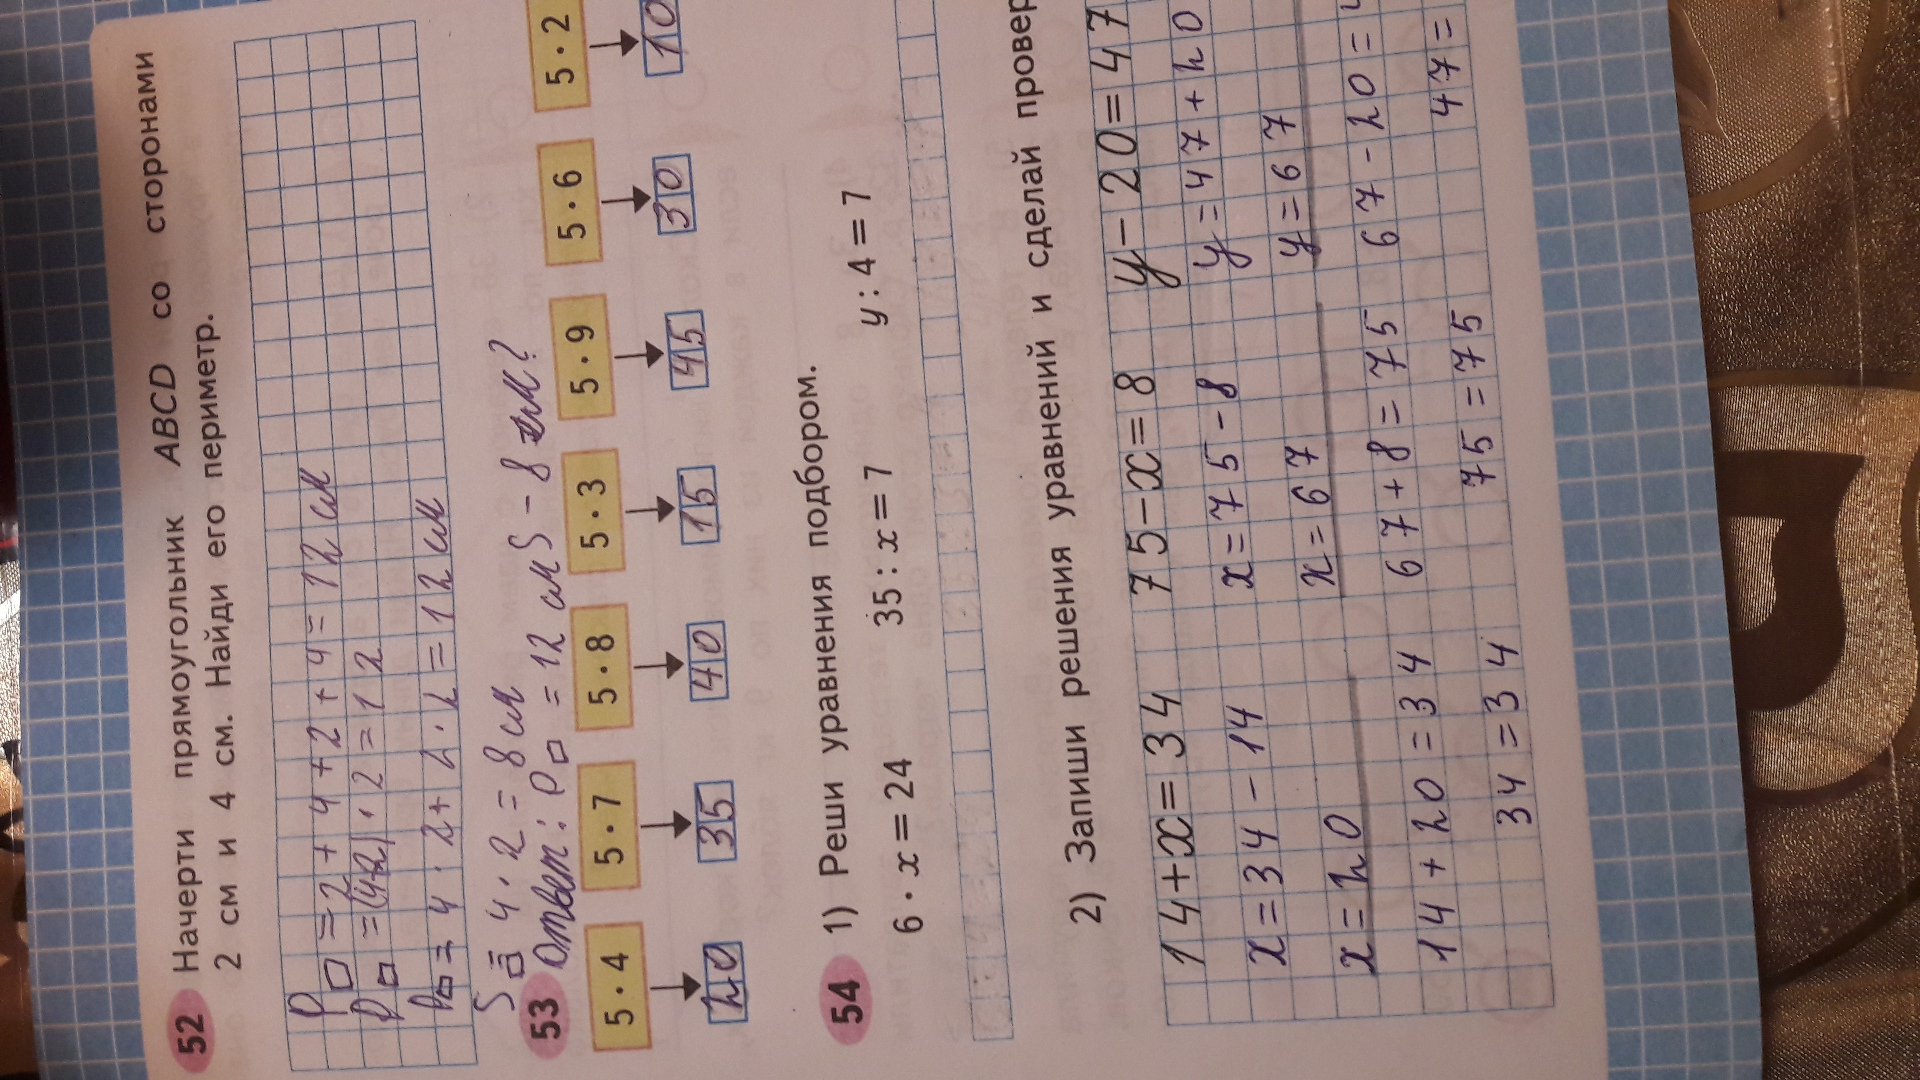 52 Начерти прямоугольник ABCD со сторонами
2 см и 4 см. Найди его периметр.
P▭ = 2 + 4 + 2 + 4 = 12 см
P▭ = (4+2) · 2 = 12
P▭ = 4 · 2 + 2 · 2 = 12 см
S▭ = 4 · 2 = 8 см
Ответ: P▭ = 12 см S - 8 см?
53 5 · 4 5 · 7 5 · 8 5 · 3 5 · 9 5 · 6 5 · 2
20 35 40 15 45 30 10
54 1) Реши уравнения подбором.
6 · x = 24 35 : x = 7 y : 4 = 7
2) Запиши решения уравнений и сделай провер
14+x=34 75-x=8 y-20=47
x=34-14 x=75-8 y=47+20
x=20 x=67 y=67
14+20=34 67+8=75 67-20=
34=34 75=75 47=